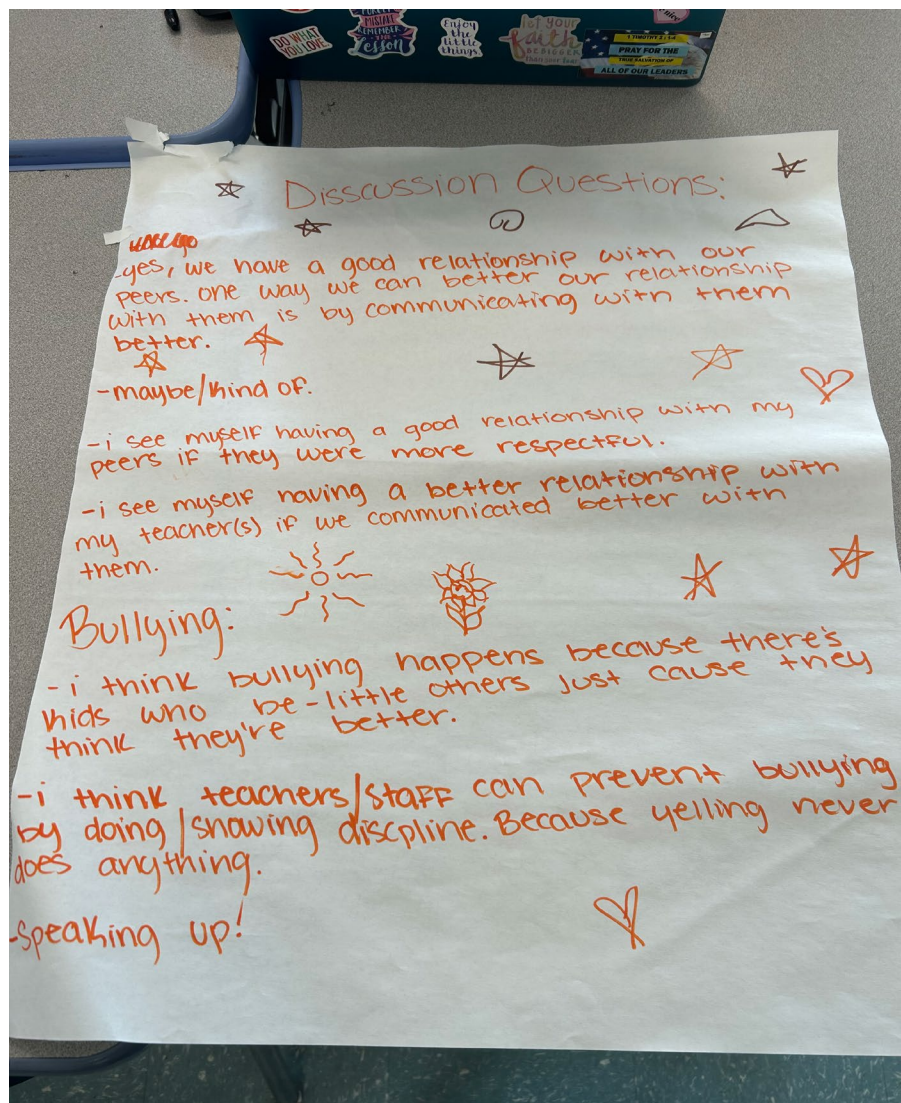 DO WHAT
YOU LOVE
MISTAKE
REMEMBER
THE
Lesson
Enjoy
the
little
things
let your
faith
BE BIGGER
than your fear
1 TIMOTHY 2:1-4
PRAY FOR THE
TRUE SALVATION OF
ALL OF OUR LEADERS
Disscussion Questions:
-yes, we have a good relationship with our
peers. one way we can better our relationship
with them is by communicating with them
better.
-maybe/kind of.
-i see myself having a good relationship with my
peers if they were more respectful.
-i see myself having a better relationship with
my teacher(s) if we communicated better with
them.
Bullying:
-i think bullying happens because there's
kids who be-little others just cause they
think they're better.
-i think teachers/staff can prevent bullying
by doing/showing discpline. Because yelling never
does anything.
-Speaking up!